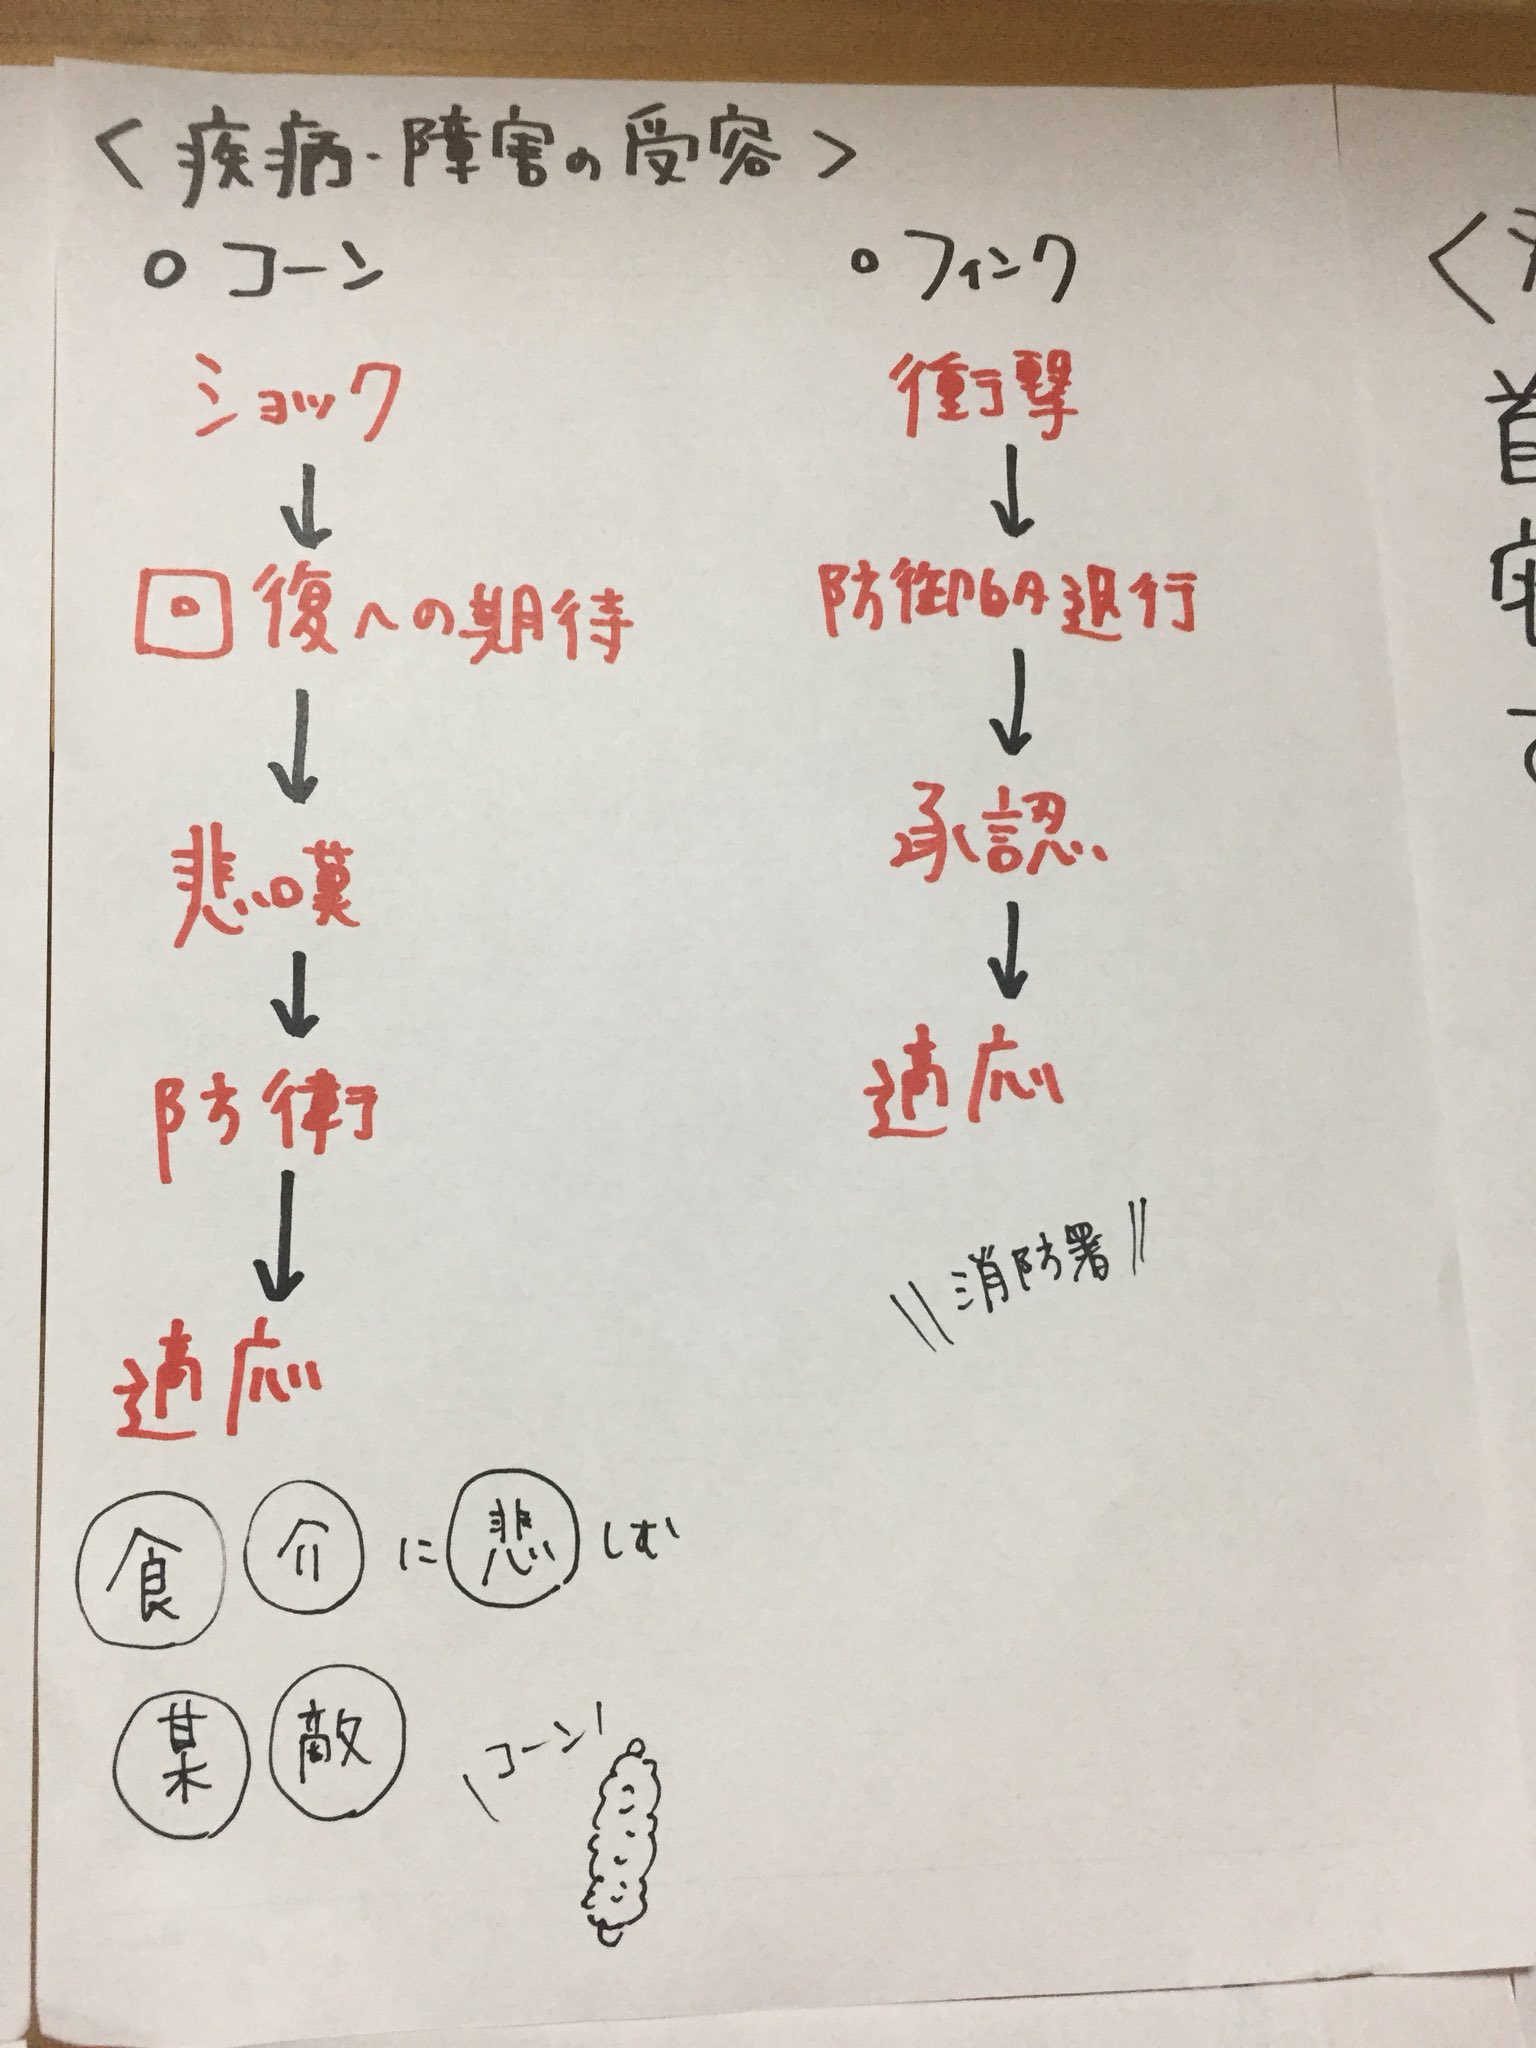 <疾病・障害の受容>
○コーン
ショック
↓
回復への期待
↓
悲嘆
↓
防衛
↓
適応
食 介 に 悲 しむ
某 敵
\コーン/
○フィンク
衝撃
↓
防御的退行
↓
承認
↓
適応
\\消防署//